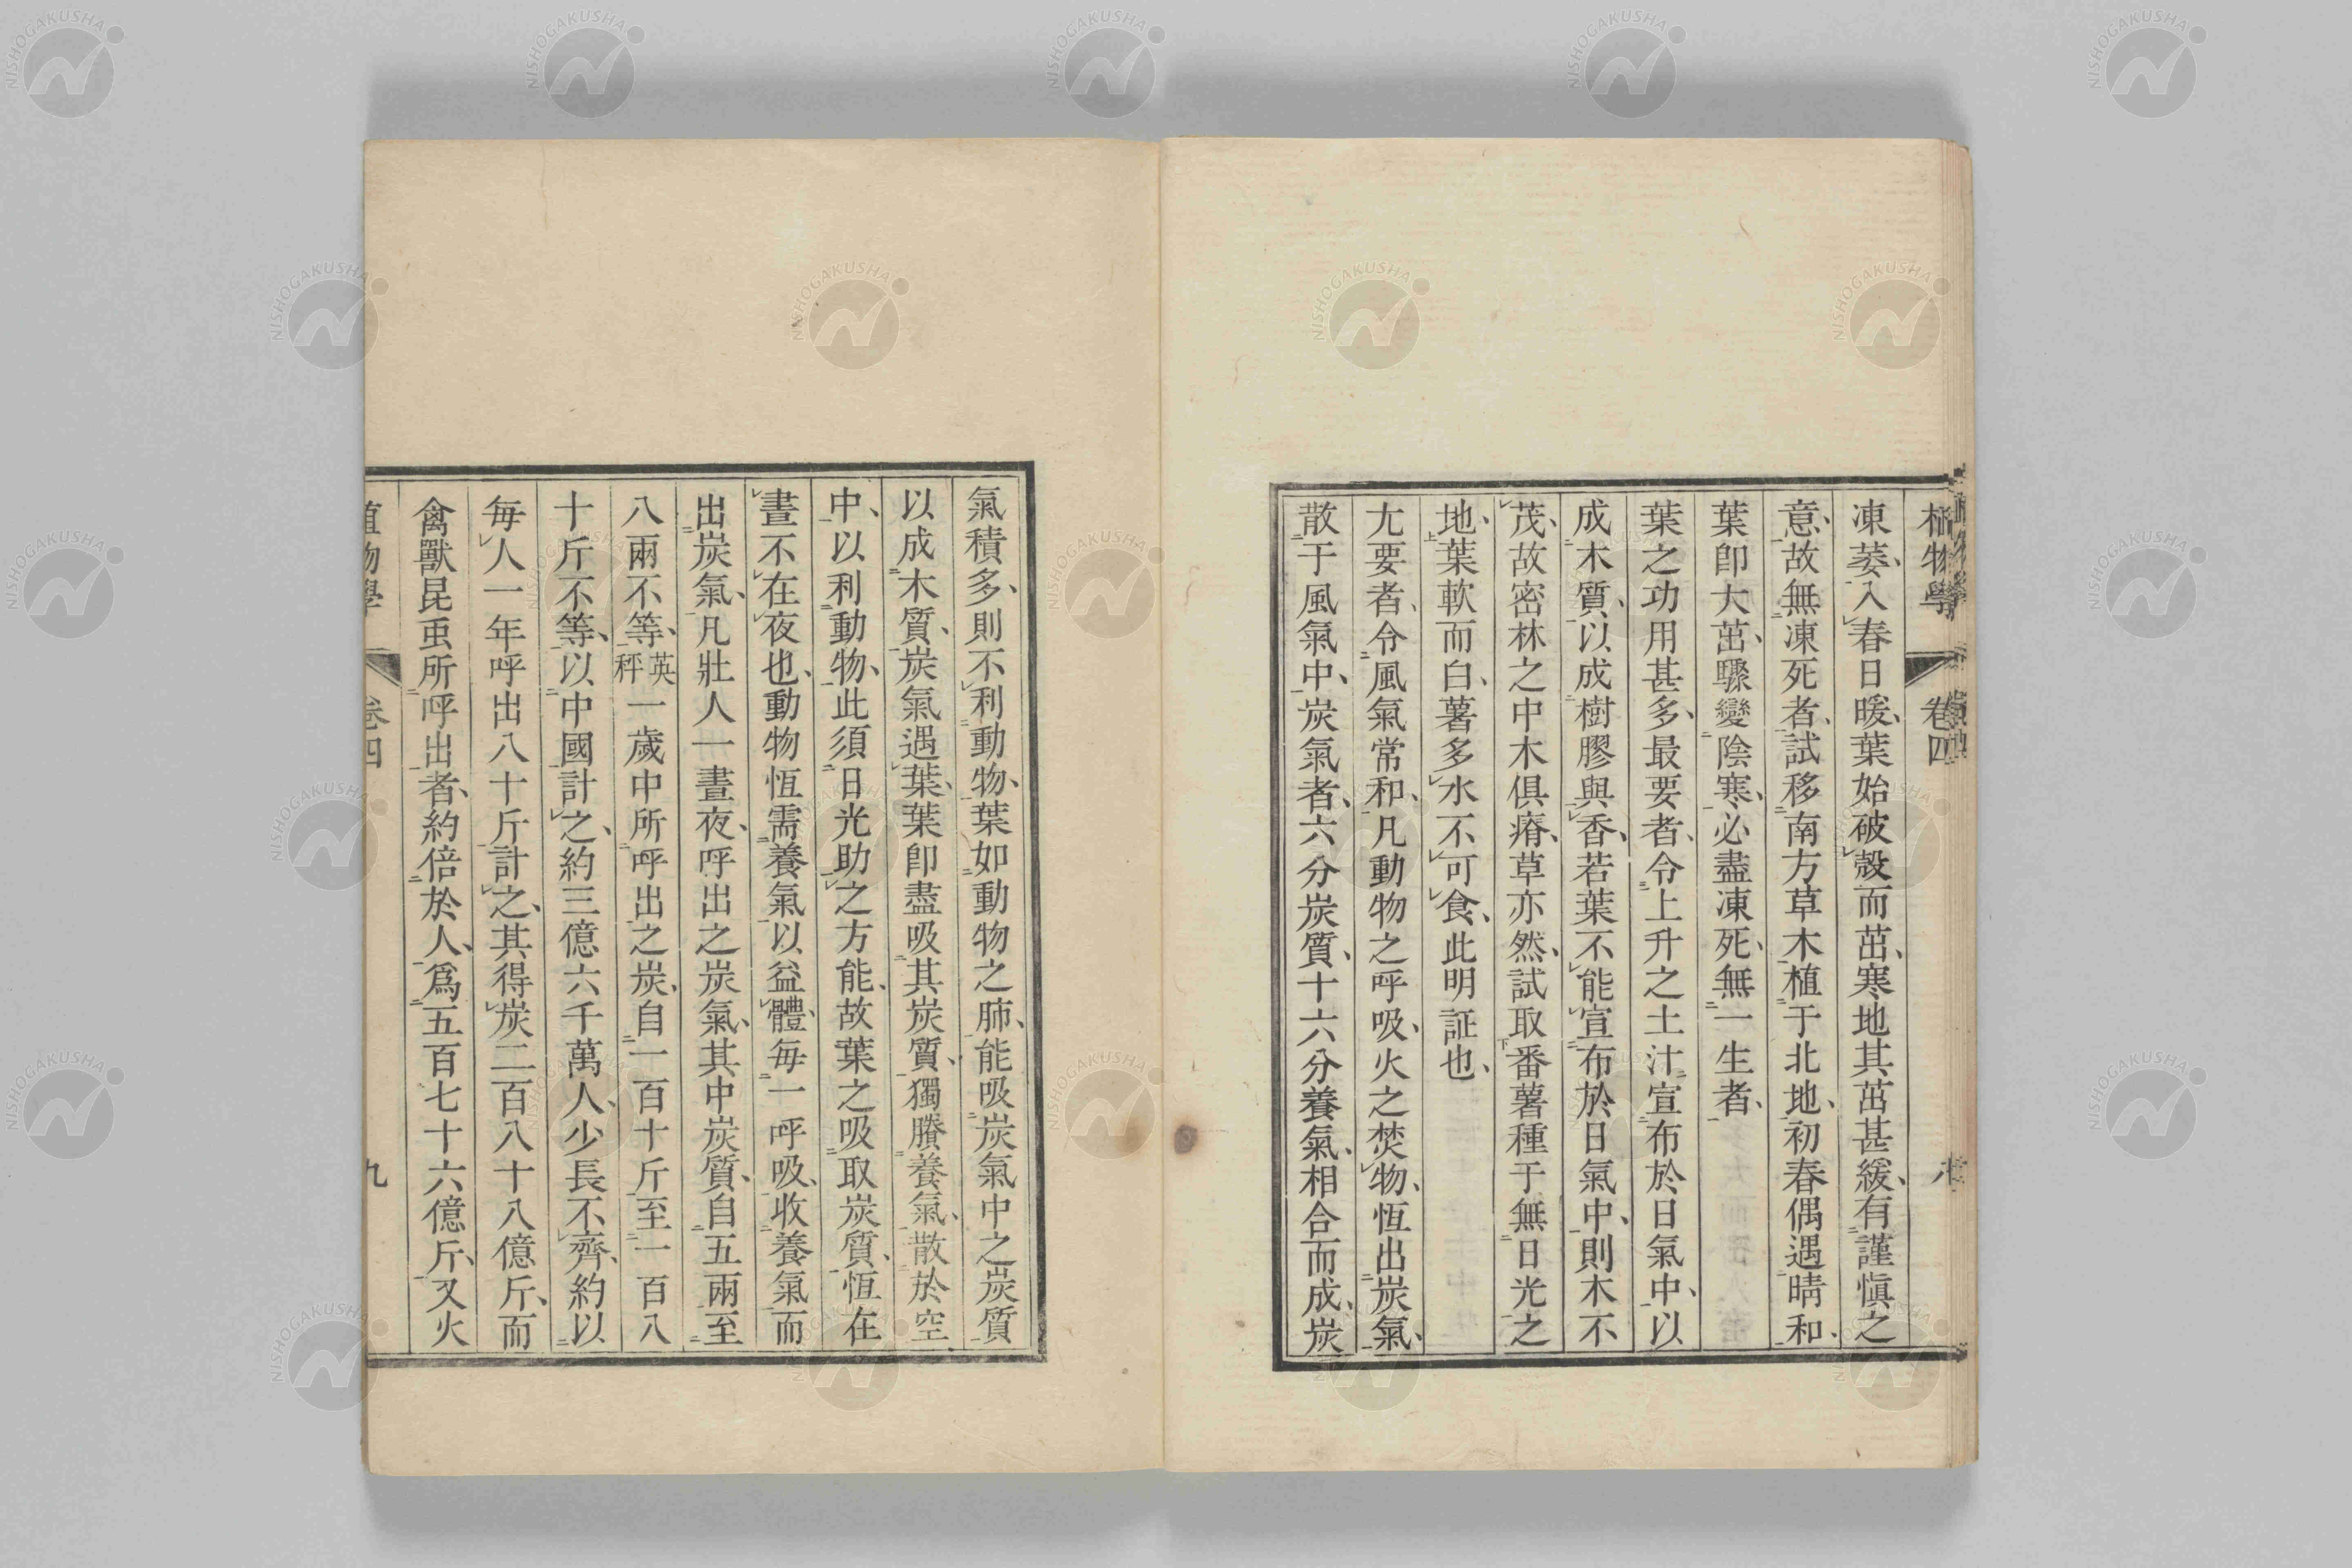 植物學 卷四 八
凍萎、入春日暖、葉始破殼而茁、寒地其茁甚緩、有謹愼之
意、故無凍死者、試移南方草木植于北地、初春偶遇晴和、
葉卽大茁、驟變陰寒、必盡凍死、無一生者、
葉之功用甚多、最要者、令上升之土汁宣布於日氣中、以
成木質、以成樹膠與香、若葉不能宣布於日氣中、則木不
茂、故密林之中木俱瘠、草亦然、試取番薯種于無日光之
地、葉軟而白、薯多水不可食、此明証也、
尢要者、令風氣常和、凡動物之呼吸、火之焚物、恆出炭氣、
散于風氣中、炭氣者、六分炭質、十六分養氣、相合而成、炭
氣積多、則不利動物、葉如動物之肺、能吸炭氣中之炭質
以成木質、炭氣遇葉、葉卽盡吸其炭質、獨賸養氣、散於空
中、以利動物、此須日光助之方能、故葉之吸取炭質、恆在
晝不在夜也、動物恆需養氣以益體、每一呼吸、收養氣而
出炭氣、凡壯人一晝夜、呼出之炭氣、其中炭質、自五兩至
八兩不等、英秤一歲中所呼出之炭、自一百十斤至一百八
十斤不等、以中國計之、約三億六千萬人、少長不齊、約以
每人一年呼出八十斤計之、其得炭二百八十八億斤、而
禽獸昆虫所呼出者、約倍於人、爲五百七十六億斤、又火
植物學 卷四 九
NISHOGAKUSHA